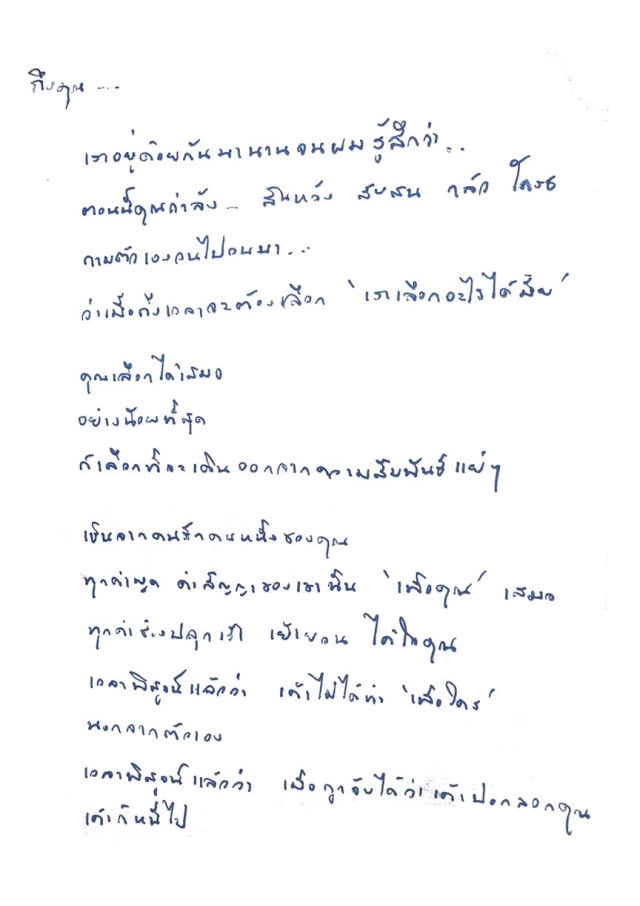 ถึงคุณ ...
เราอยู่ด้วยกันมานานจนผมรู้สึกว่า...
ตอนนี้คุณกำลัง... สิ้นหวัง สับสน กลัว โกรธ
ถามตัวเองวนไปวนมา...
ว่าเมื่อถึงเวลาจะต้องเลือก 'เราเลือกอะไรได้มั้ย'
คุณเลือกได้เสมอ
อย่างน้อยที่สุด
ก็เลือกที่จะเดินออกจากความสัมพันธ์แย่ๆ
เช่นจากคนรักคนหนึ่งของคุณ
ทุกคำพูด คำสัญญาของเขานั้น 'เพื่อคุณ' เสมอ
ทุกคำช่างปลุกเร้า เย้ายวน ได้ใจคุณ
เวลาพิสูจน์แล้วว่า เค้าไม่ได้ทำ 'เพื่อใคร'
นอกจากตัวเอง
เวลาพิสูจน์แล้วว่า เมื่อถูกจับได้ว่าเค้าปอกลอกคุณ
เค้าก็หนีไป